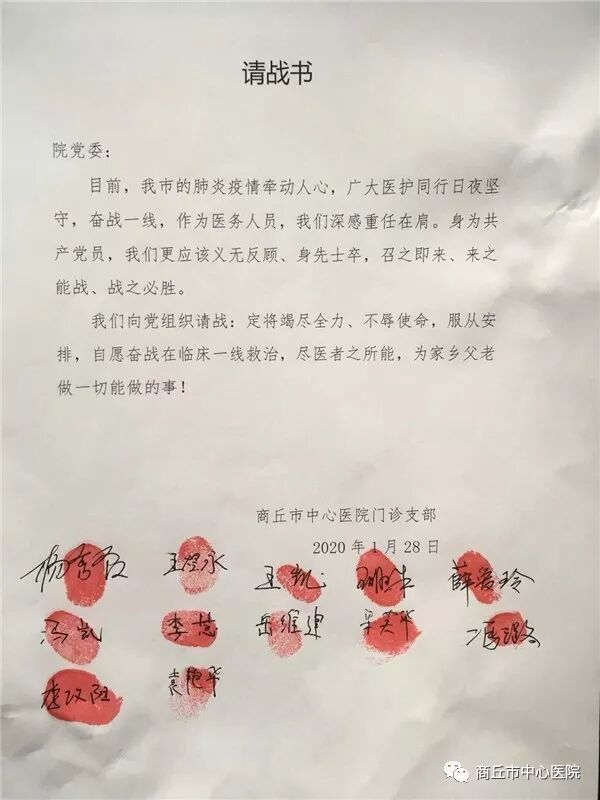 请战书
院党委：
目前，我市的肺炎疫情牵动人心，广大医护同行日夜坚
守，奋战一线，作为医务人员，我们深感重任在肩。身为共
产党员，我们更应该义无反顾、身先士卒，召之即来、来之
能战、战之必胜。
我们向党组织请战：定将竭尽全力、不辱使命，服从安
排，自愿奋战在临床一线救治，尽医者之所能，为家乡父老
做一切能做的事！
商丘市中心医院门诊支部
2020 年 1 月 28 日
王煜永 王凯 薛爱玲
冯凯 李慧 岳维建 梁英华 冯璐
袁艳华
商丘市中心医院